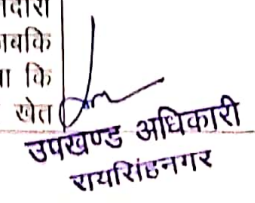 जबकि
कि
खेत
उपखण्ड अधिकारी
रायसिंहनगर